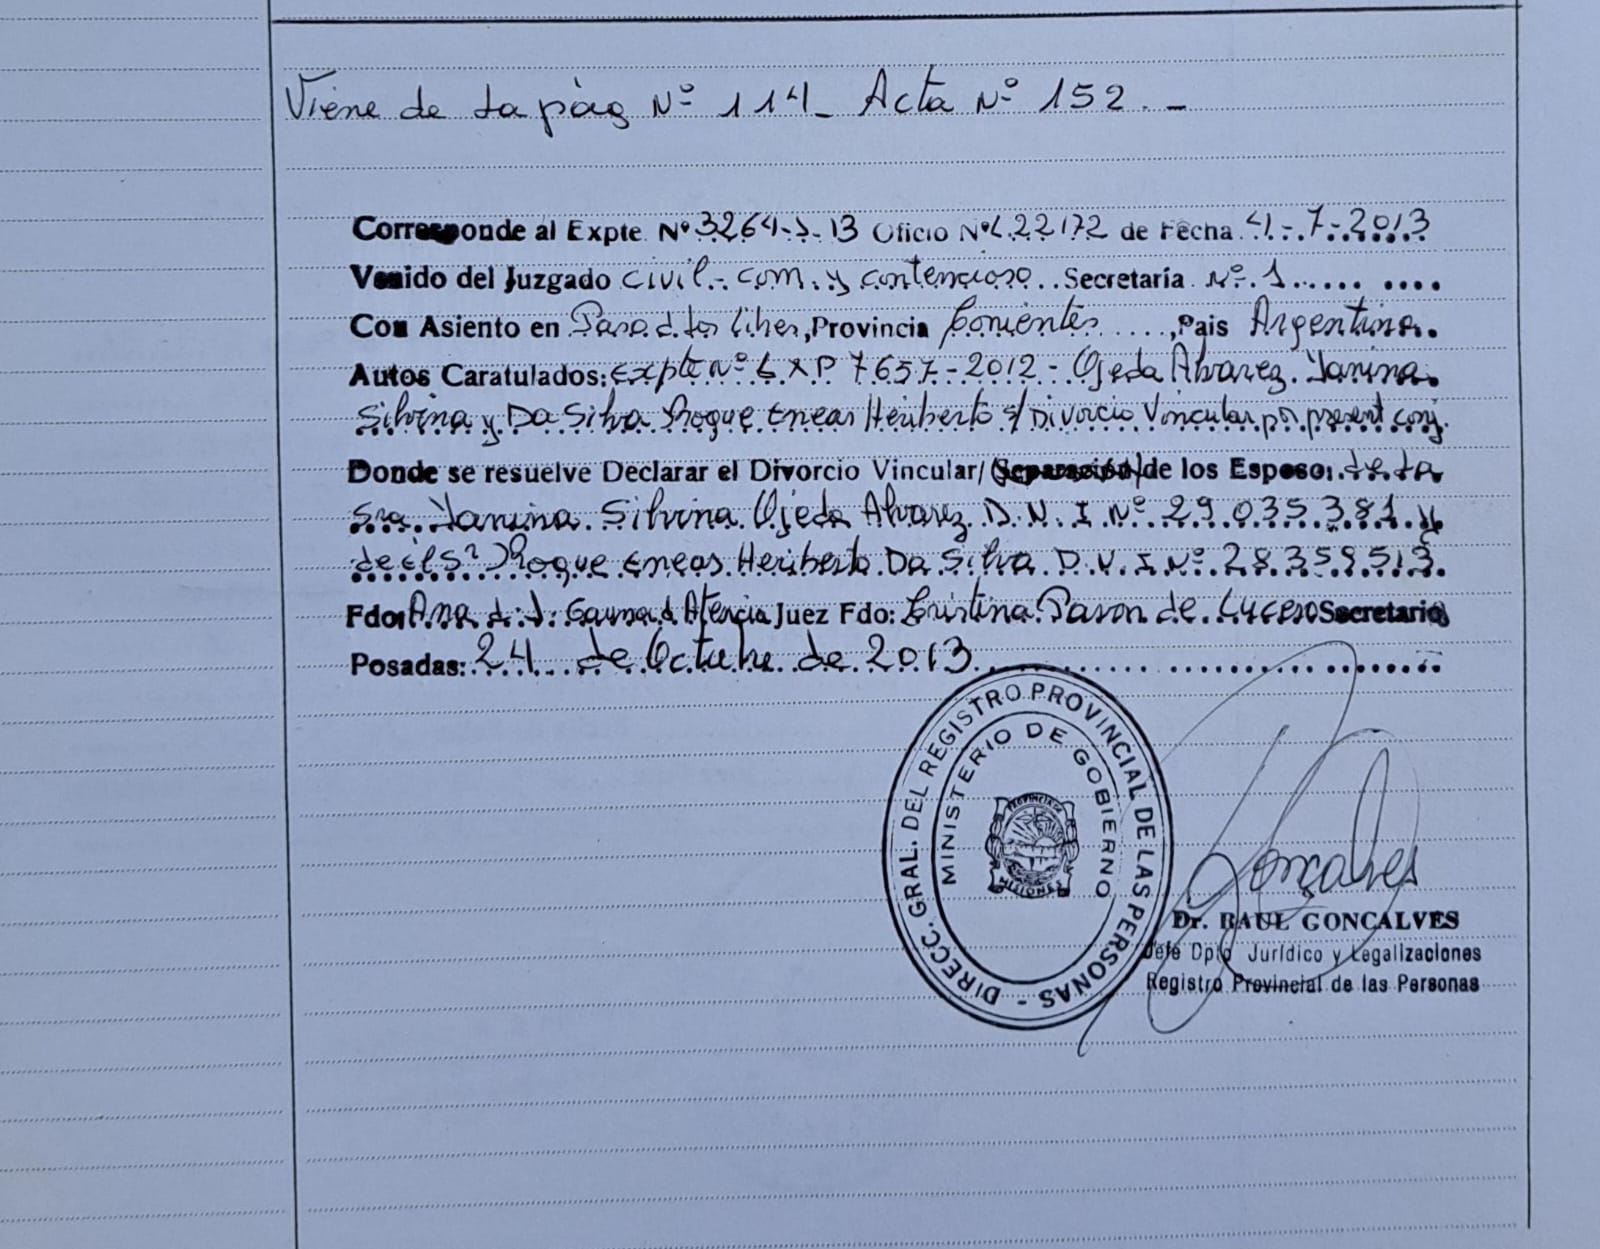 Viene de la pág Nº 114_ Acta Nº 152._
Corresponde al Expte. Nº 3264-J-13 Oficio Nº L22172 de Fecha 4-7-2013
Venido del Juzgado civil-com. y contencioso Secretaría Nº 1
Con Asiento en Paso d. los libres, Provincia Corrientes, Pais Argentina.
Autos Caratulados: Expte Nº LXP 7657-2012- Ojeda Alvarez Yanina
Silvina y Da Silva Roque Eneas Heriberto s/ Divorcio Vincular por present conj.
Donde se resuelve Declarar el Divorcio Vincular/ (Separación) de los Esposo: de la
Sra. Yanina Silvina Ojeda Alvarez D.N.I Nº 29.035.381 y
del Sr Roque Eneas Heriberto Da Silva D.N.I Nº 28.359.513
Fdo: Ana d. Gauna d Atencia Juez Fdo: Cristina Pavon de Lucero Secretario
Posadas: 24 de Octubre de 2013
DIRECC. GRAL. DEL REGISTRO PROVINCIAL DE LAS PERSONAS -
MINISTERIO DE GOBIERNO
PROVINCIA DE
MISIONES
Gonçalves
Dr. RAUL GONCALVES
Jefe Dpto Jurídico y Legalizaciones
Registro Provincial de las Personas